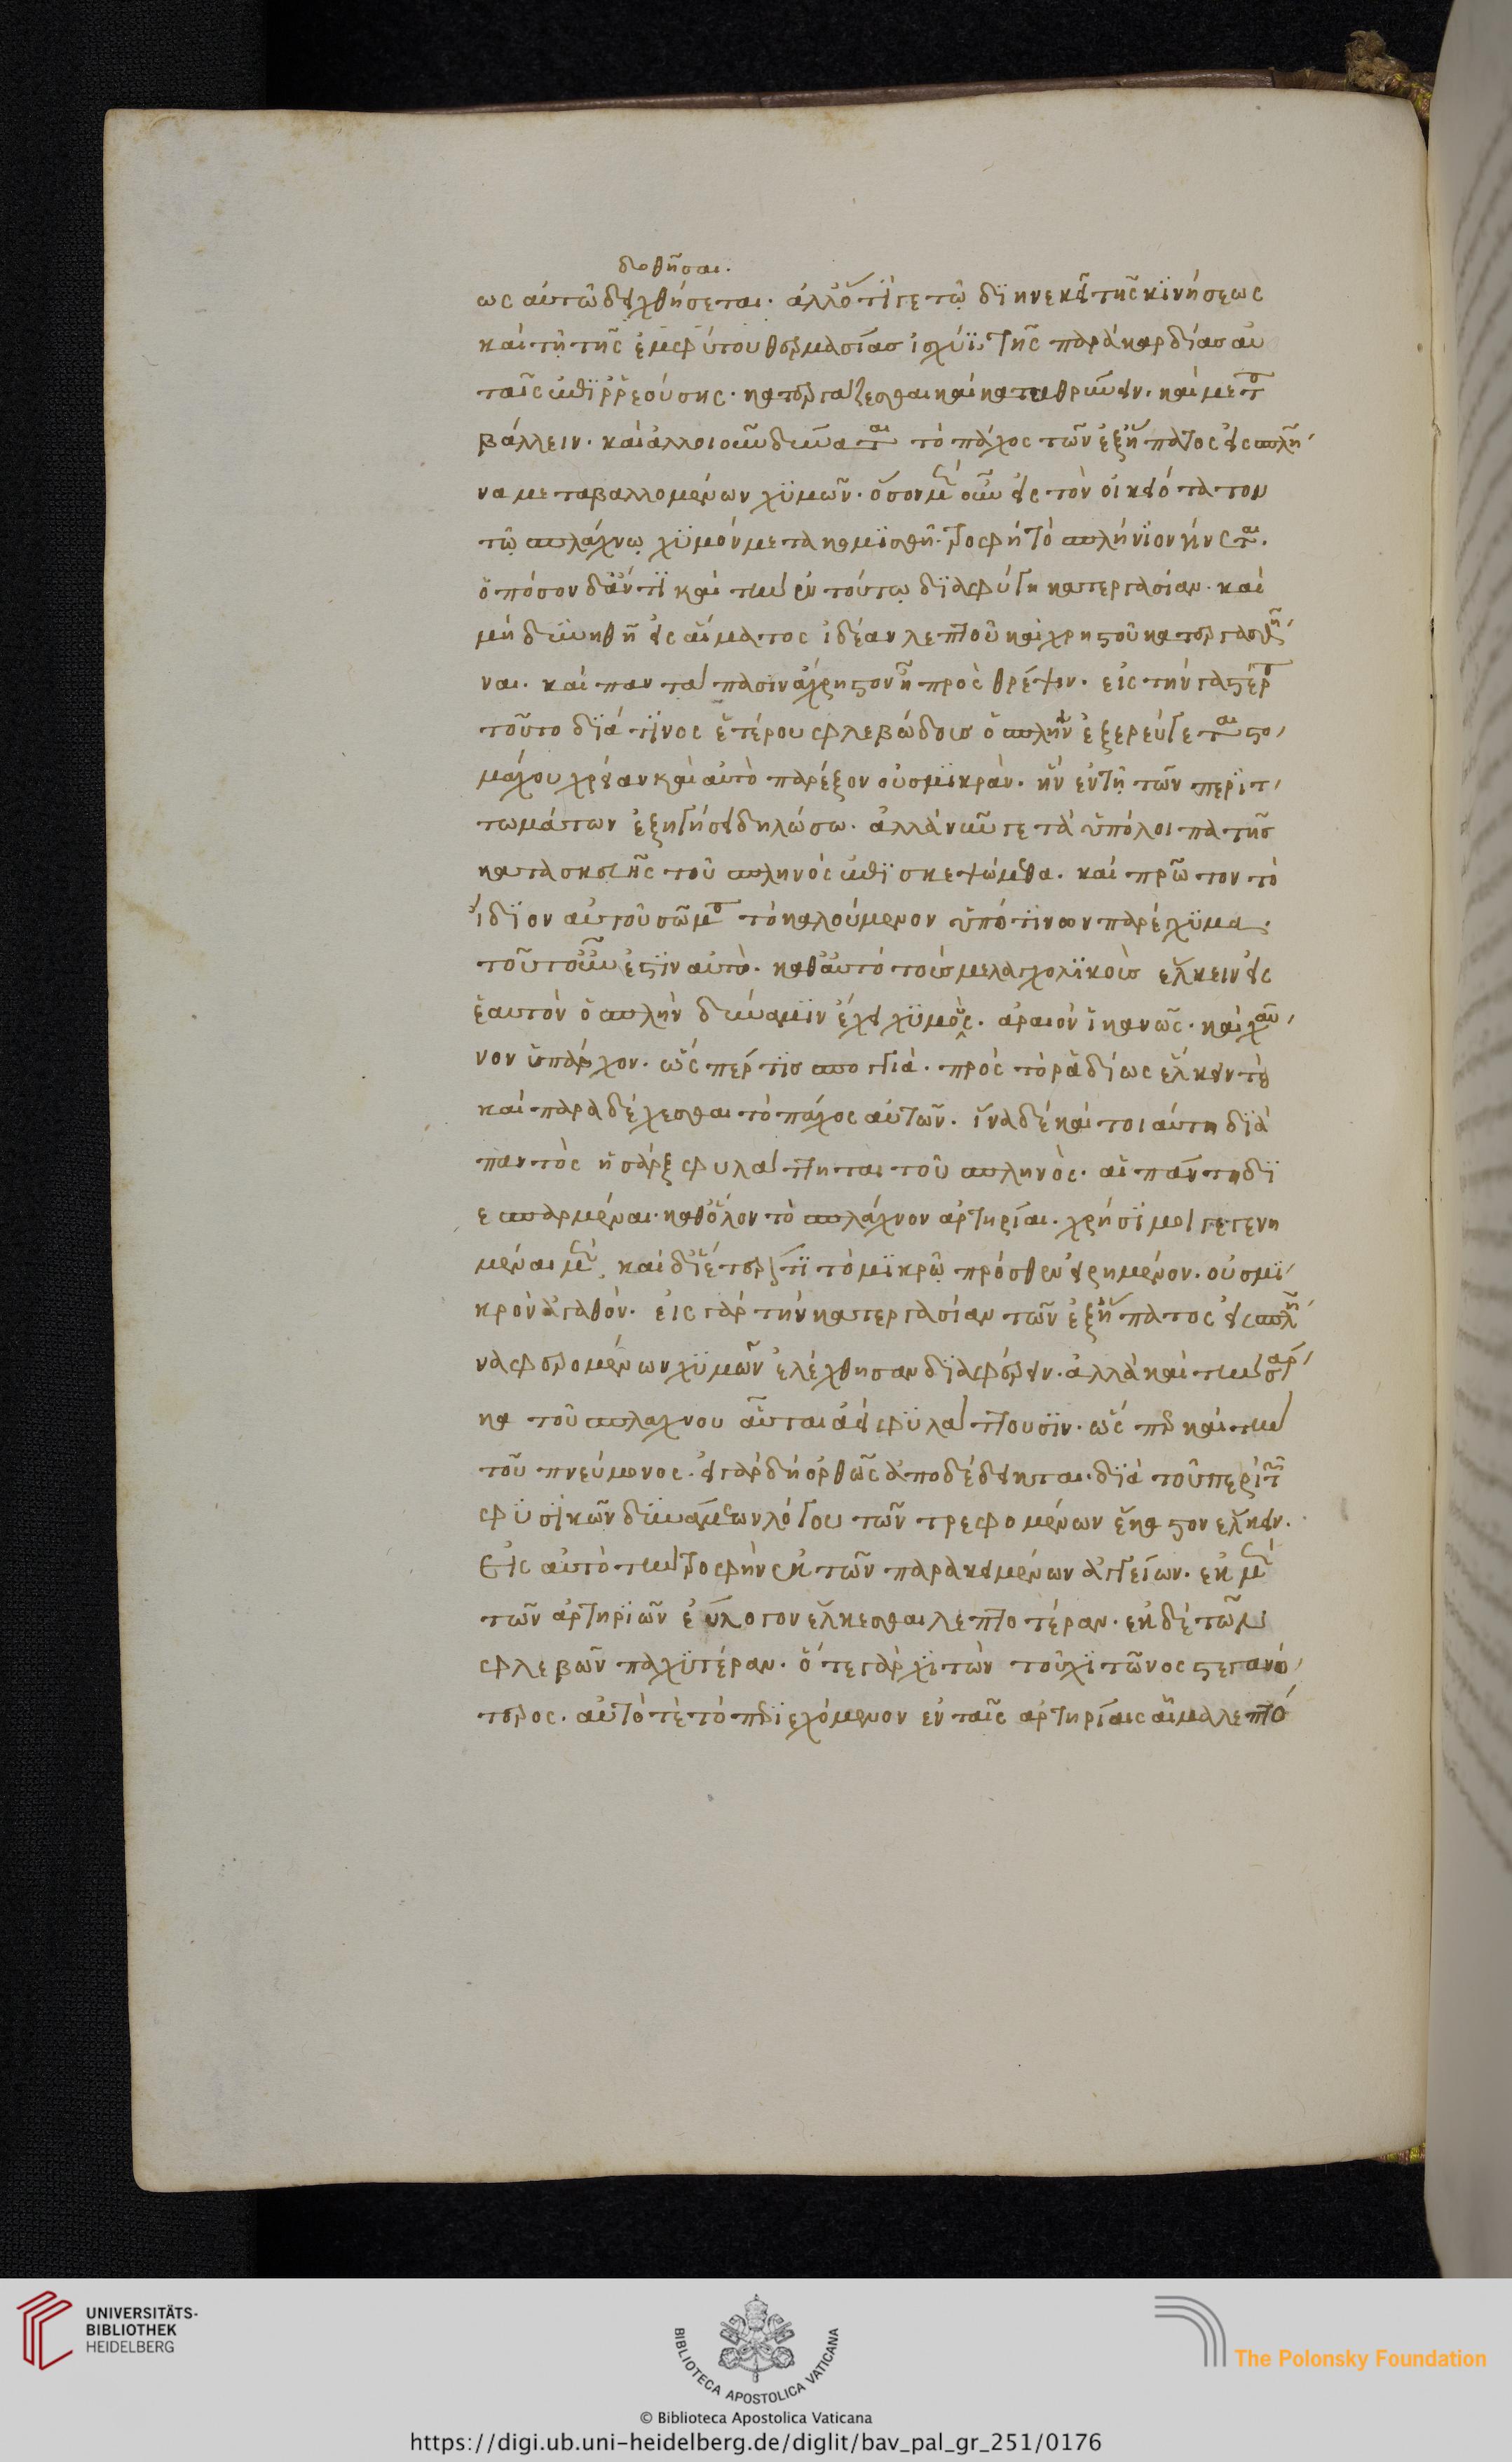 δοθῆσαι.
ως αὐτῶ δειχθήσεται. ἀλλ' ὅτι γε τῷ διηνεκεῖ τῆς κινήσεως
καὶ τῇ τῆς ἐμφύτου θερμασίας ἰσχύϊ, τῆς παρὰ καρδίας αὐ
ταῖς ἐπιῤῥεούσης. κατεργάζεσθαι καὶ καταθραύειν. καὶ μετα
βάλλειν. καὶ ἀλλοιοῦν δύναται τὸ πάχος τῶν ἐξ ἥπατος εἰς σπλῆ
να μεταβαλλομένων χυμῶν. ὅσον μὲν οὖν εἰς τὸν οἰκειότατον
τῷ σπλάχνῳ χυμὸν μετακομισθῇ. τροφὴ τὸ σπλήνιον γίνεται.
ὁπόσον δ' ἄν τι καὶ τὴν ἐν τούτῳ διαφύγῃ κατεργασίαν. καὶ
μὴ δυνηθῇ εἰς αἵματος ἰδέαν λεπτοῦ καὶ χρηστοῦ κατεργασθῆ
ναι. καὶ παντάπασιν ἄχρηστον ᾖ πρὸς θρέψιν. εἰς τὴν γαστέρα
τοῦτο διά τινος ἑτέρου φλεβώδους ὁ σπλὴν ἐξερεύγεται στο
μάχου χρείαν καὶ αὐτὸ παρέξον οὐ σμικράν. ἣν ἐν τῇ τῶν περιτ
τωμάτων ἐξηγήσει δηλώσω. ἀλλὰ νῦν γε τὰ ὑπόλοιπα τῆς
κατασκευῆς τοῦ σπληνὸς ἐπισκεψώμεθα. καὶ πρῶτον τὸ
ἴδιον αὐτοῦ σῶμα τὸ καλούμενον ὑπό τινων παρέγχυμα.
τοῦτ' οὖν ἐστιν αὐτὸ. καθ' αὑτὸ τοὺς μελαγχολικοὺς ἕλκειν εἰς
ἑαυτὸν ὁ σπλὴν δύναμιν ἔχει χυμούς. ἀραιὸν ἱκανῶς. καὶ χαῦ
νον ὑπάρχον. ὥς πέρ τις σπογγιά. πρὸς τὸ ῥᾳδίως ἕλκειν τὲ
καὶ παραδέχεσθαι τὸ πάχος αὐτῶν. ἵνα δὲ καὶ τοιαύτη διὰ
παντὸς ἡ σὰρξ φυλάττηται τοῦ σπληνὸς. αἱ πάντη δι
εσπαρμέναι καθ' ὅλον τὸ σπλάχνον ἀρτηρίαι. χρήσιμοι γεγενη
μέναι μὲν, καὶ δι' ἕτερόν τι τὸ μικρῷ πρόσθεν εἰρημένον. οὐ σμι
κρὸν ἀγαθόν. εἰς γὰρ τὴν κατεργασίαν τῶν ἐξ ἥπατος εἰς σπλῆ
να φερομένων χυμῶν ἐλέχθησαν διαφέρειν. ἀλλὰ καὶ τὴν σάρ
κα τοῦ σπλάγχνου αὗται ἀεὶ φυλάττουσιν. ὥς περ καὶ τὴν
τοῦ πνεύμονος. εἰ γὰρ δὴ ὀρθῶς ἀποδέδεικται. διὰ τοῦ περὶ τῶν
φυσικῶν δυνάμεων λόγου τῶν τρεφομένων ἕκαστον ἕλκειν.
Εἰς αὐτὸ τὴν τροφὴν ἐκ τῶν παρακειμένων ἀγγείων. ἐκ μὲν
τῶν ἀρτηριῶν εὔλογον ἕλκεσθαι λεπτοτέραν. ἐκ δὲ τῶν
φλεβῶν παχυτέραν. ὅ τε γὰρ χιτὼν τοῦ χιτῶνος στεγανώ
τερος. αὐτό τὲ τὸ περιεχόμενον ἐν ταῖς ἀρτηρίαις αἷμα λεπτό
UNIVERSITÄTS-
BIBLIOTHEK
HEIDELBERG
BIBLIOTECA APOSTOLICA VATICANA
The Polonsky Foundation
© Biblioteca Apostolica Vaticana
https://digi.ub.uni-heidelberg.de/diglit/bav_pal_gr_251/0176